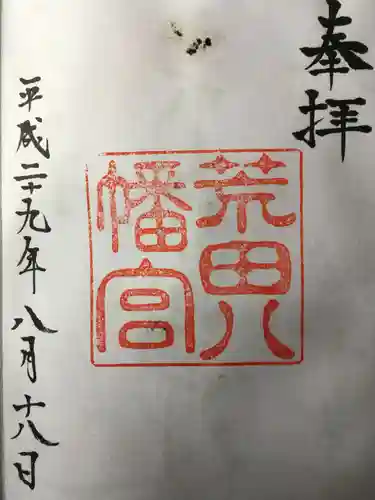 奉拝
荒田八
幡宮
平成二十九年八月十八日